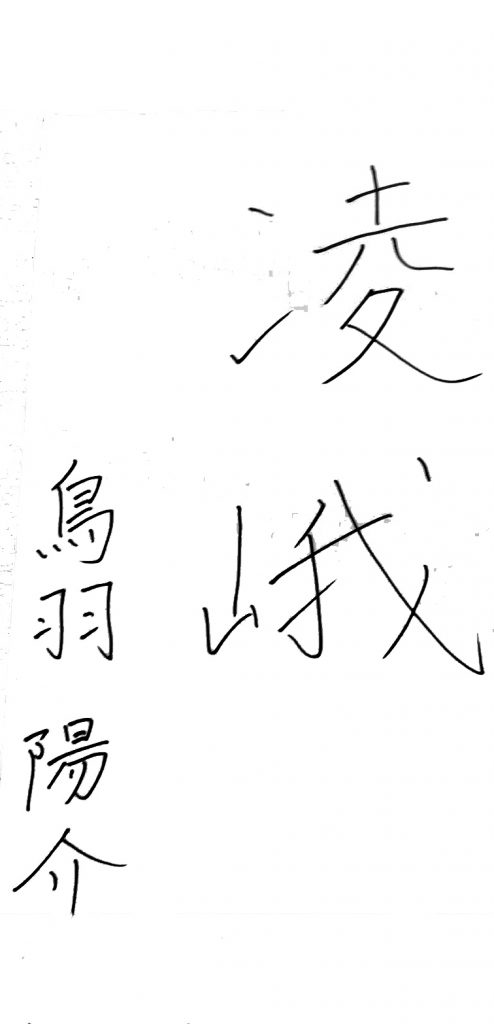 凌峨
鳥羽陽介